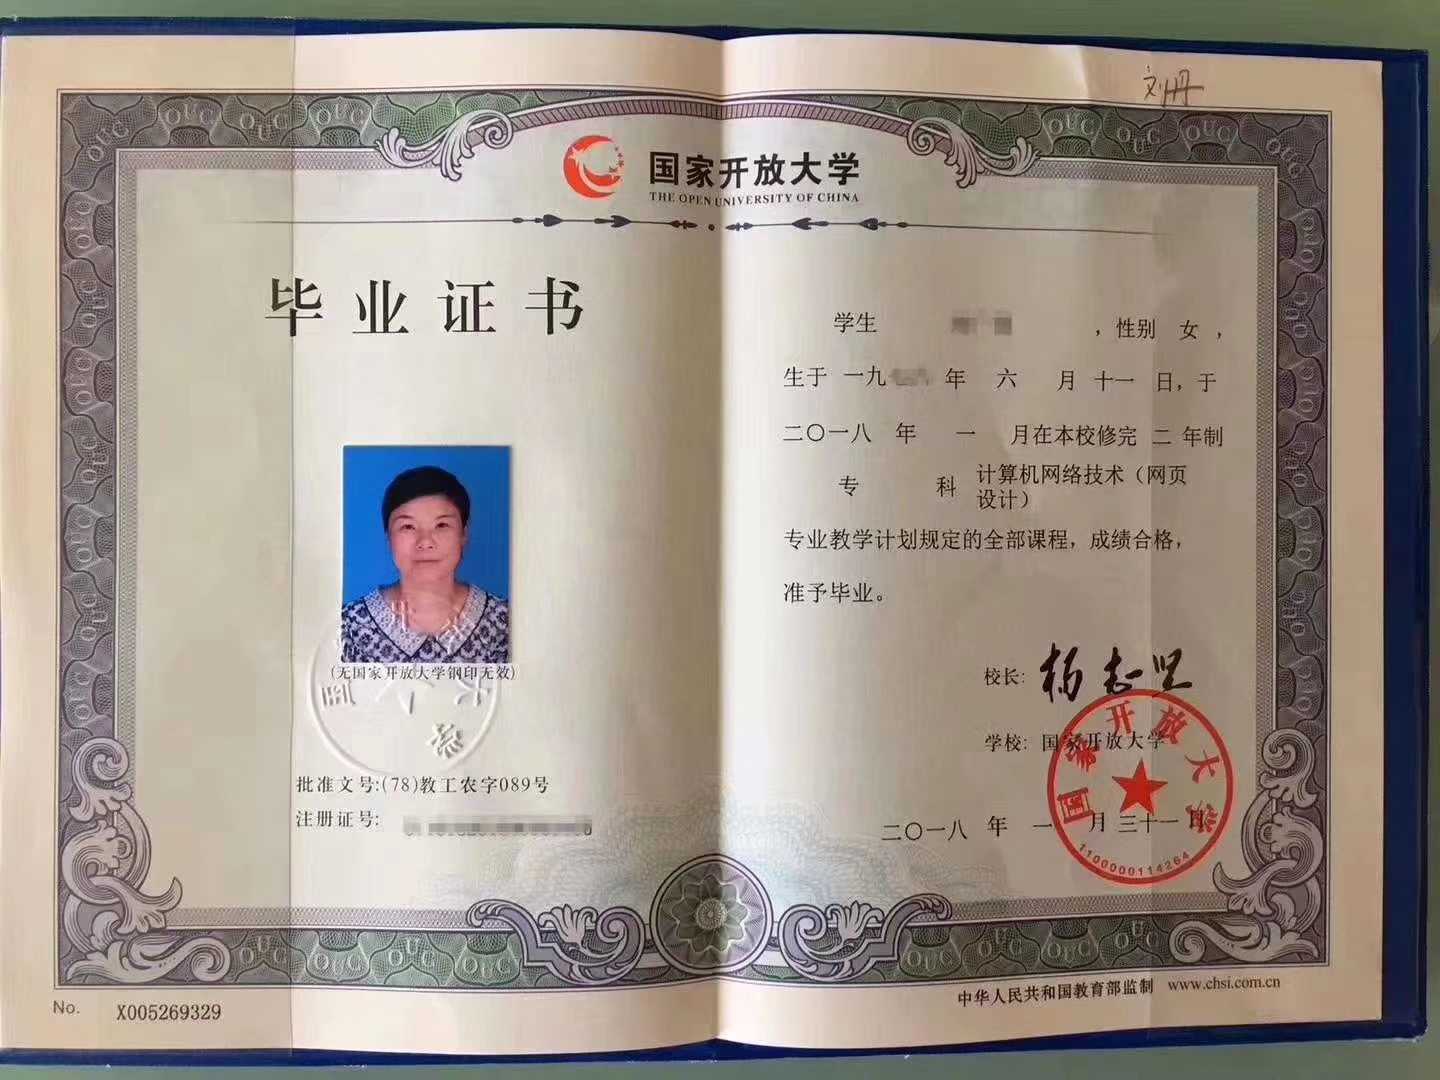 刘丹
国家开放大学
THE OPEN UNIVERSITY OF CHINA
毕业证书
(无国家开放大学钢印无效)
批准文号:(78)教工农字089号
注册证号:
No. X005269329
学生 ，性别 女，
生于 一九 年 六 月 十一 日，于
二〇一八 年 一 月在本校修完 二 年制
专 科 计算机网络技术（网页
设计）
专业教学计划规定的全部课程，成绩合格，
准予毕业。
校长: 杨志坚
学校: 国家开放大学
二〇一八 年 一 月 三十一 日
国家开放大学
1100000114264
中华人民共和国教育部监制 www.chsi.com.cn